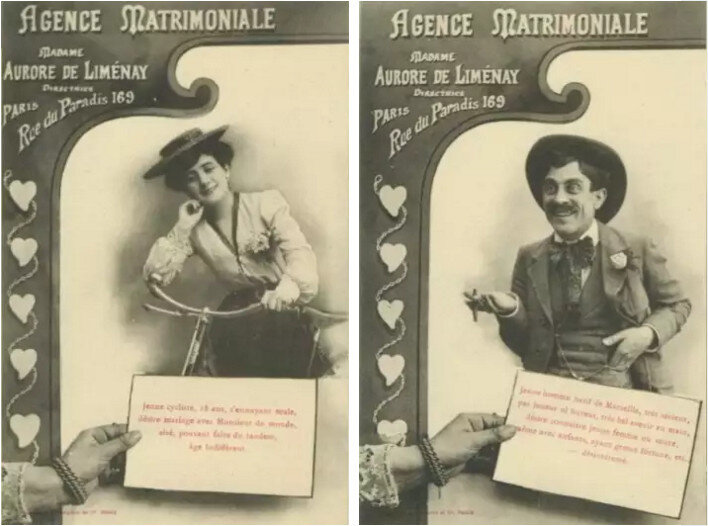 AGENCE MATRIMONIALE
MADAME
AURORE DE LIMÉNAY
DIRECTRICE
PARIS
Rue du Paradis 169
Jeune cycliste, 18 ans, s'ennuyant seule,
désire mariage avec Monsieur du monde,
aisé, pouvant faire du tandem,
âge indifférent
AGENCE MATRIMONIALE
MADAME
AURORE DE LIMÉNAY
DIRECTRICE
PARIS
Rue du Paradis 169
Jeune homme natif de Marseille, très sérieux,
pas joueur ni buveur, très bel avenir en main,
désire connaître jeune femme ou veuve,
même avec enfants, ayant grosse fortune, et
désintéressé.